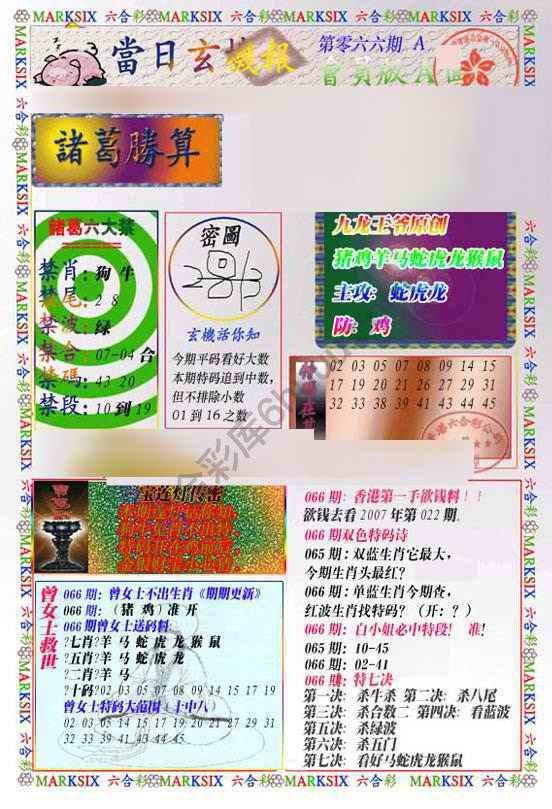 MARKSIX 六合彩 MARKSIX 六合彩 MARKSIX 六合彩 MARKSIX 六合彩 MARKSIX
當日玄機報
第零六六期 A
會員版A面
諸葛勝算
諸葛六大禁
禁肖:狗牛
禁尾:2 8
禁波:绿
禁合:07-04合
禁碼:43 20
禁段:10到19
密圖
玄機話你知
今期平码看好大数
本期特码追到中数,
但不排除小数
01到16之数
九龙王爷原创
猪鸡羊马蛇虎龙猴鼠
主攻:蛇虎龙
防:鸡
02 03 05 07 08 09 14 15
17 19 20 21 26 27 29 31
32 33 38 39 41 43 44 45
宝莲灯传密
066期:香港第一手欲钱料!!
欲钱去看2007年第022期.
066期双色特码诗
065期:双蓝生肖它最大,
今期生肖头最红?
066期:单蓝生肖今期查,
红波生肖找特码?(开:?)
066期:白小姐必中特段! 准!
065期:10-45
066期:02-41
066期:特七决
第一决:杀牛杀 第二决:杀八尾
第三决:杀合数二 第四决:看蓝波
第五决:杀绿波
第六决:杀五门
第七决:看好马蛇虎龙猴鼠
曾女士救世
066期:曾女士不出生肖《期期更新》
066期:(猪 鸡)准开
066期曾女士送码料:
?七肖?羊马蛇虎龙猴鼠
?五肖?羊马蛇虎龙
?二肖?羊马
?十码?02 03 05 07 08 09 14 15 17 19
曾女士特码大范围(十中八)
02 03 05 14 15 17 19 20 21 27 29 31
32 33 39 41 43 44 45
MARKSIX 六合彩 MARKSIX 六合彩 MARKSIX 六合彩 MARKSIX 六合彩 MARKSIX